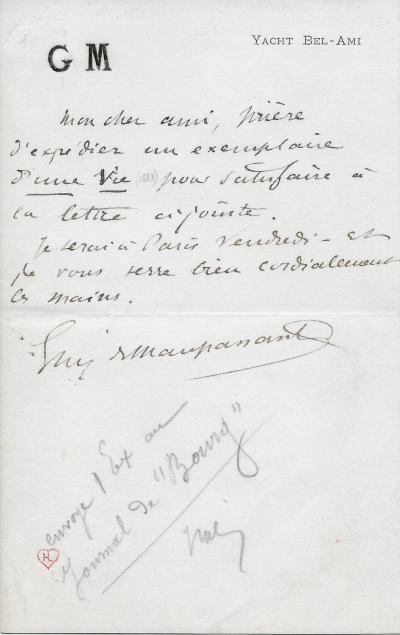 YACHT BEL-AMI
G M
Mon cher ami, prière
d'expédier un exemplaire
d'une Vie (1883) pour satisfaire à
la lettre ci jointe.
Je serai à Paris Vendredi - et
je vous serre bien cordialement
les mains.
Guy de Maupassant
envoyé 1 Ex au
Journal de "Bourg"
HL